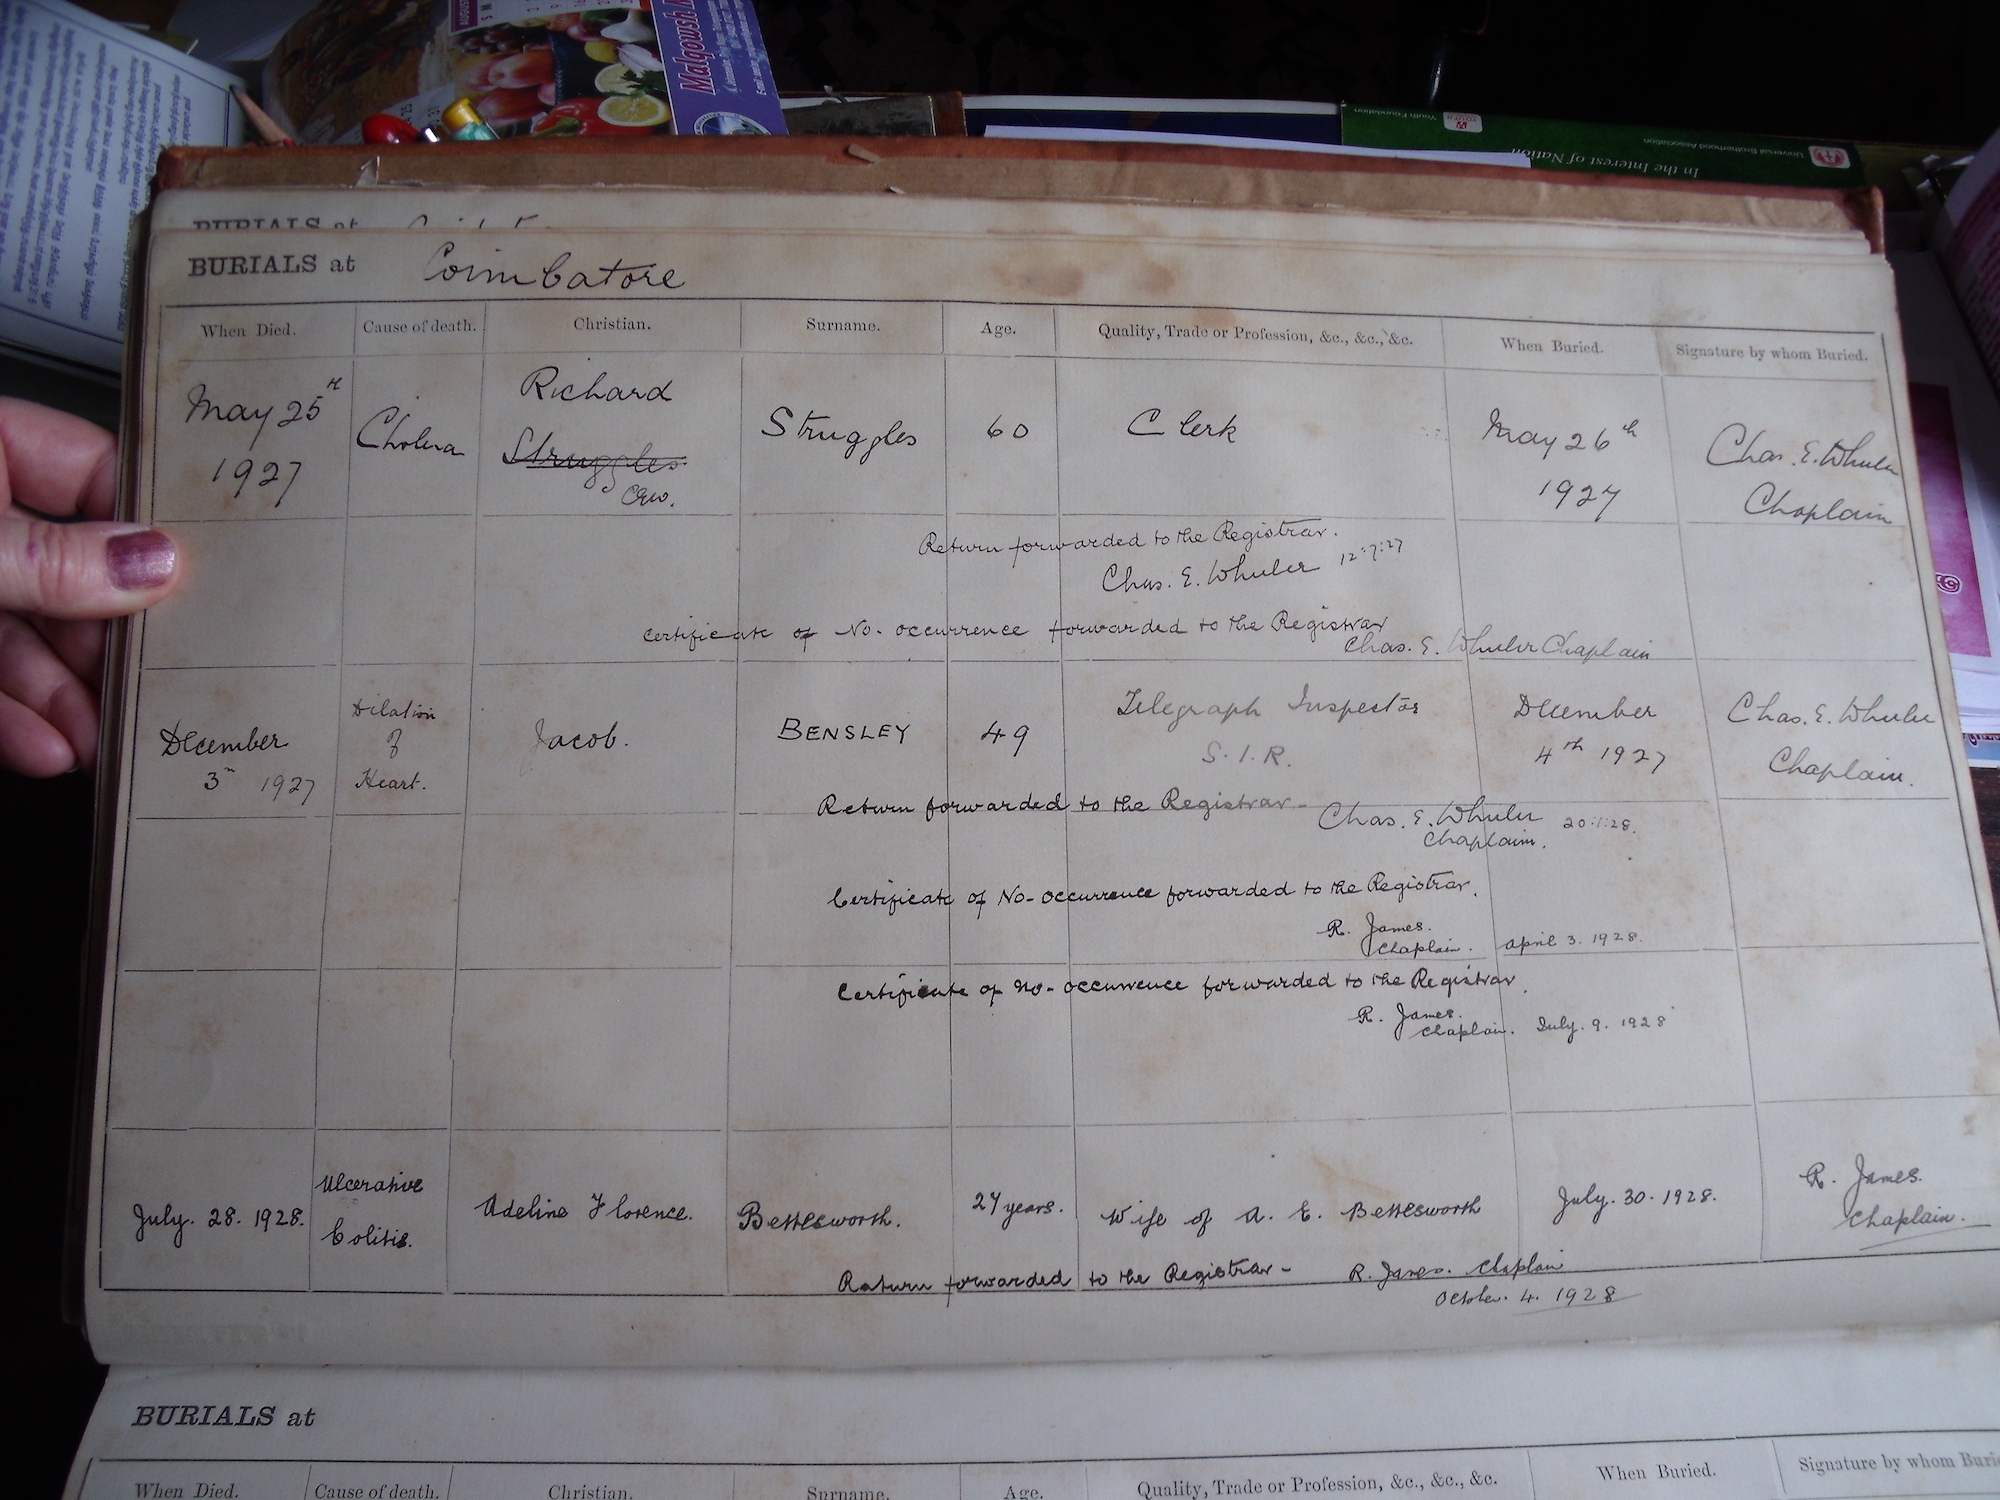 AUGUST
Malgowsh
Youth Foundation
Universal Brotherhood Association
In the Interest of Nation
BURIALS at
BURIALS at Coimbatore
When Died. Cause of death. Christian. Surname. Age. Quality, Trade or Profession, &c., &c., &c. When Buried. Signature by whom Buried.
May 25th 1927 Cholera Richard Struggles CEW. Struggles 60 Clerk May 26th 1927 Chas. E. Wheeler Chaplain
Return forwarded to the Registrar.
Chas. E. Wheeler 12:7:27
Certificate of No-occurrence forwarded to the Registrar
Chas. E. Wheeler Chaplain
December 3rd 1927 Dilation of Heart. Jacob. BENSLEY 49 Telegraph Inspector S.I.R. December 4th 1927 Chas. E. Wheeler Chaplain.
Return forwarded to the Registrar-
Chas. E. Wheeler 20:1:28.
Chaplain.
Certificate of No-occurrence forwarded to the Registrar.
R. James.
Chaplain. April 3. 1928.
Certificate of No-occurrence forwarded to the Registrar.
R. James.
Chaplain. July. 9. 1928
July. 28. 1928. Ulcerative Colitis. Adeline Florence. Bettesworth. 27 years. Wife of A. E. Bettesworth July. 30. 1928. R. James. Chaplain.
Return forwarded to the Registrar- R. James. Chaplain
October. 4. 1928
BURIALS at
When Died. Cause of death. Christian. Surname. Age. Quality, Trade or Profession, &c., &c., &c. When Buried. Signature by whom